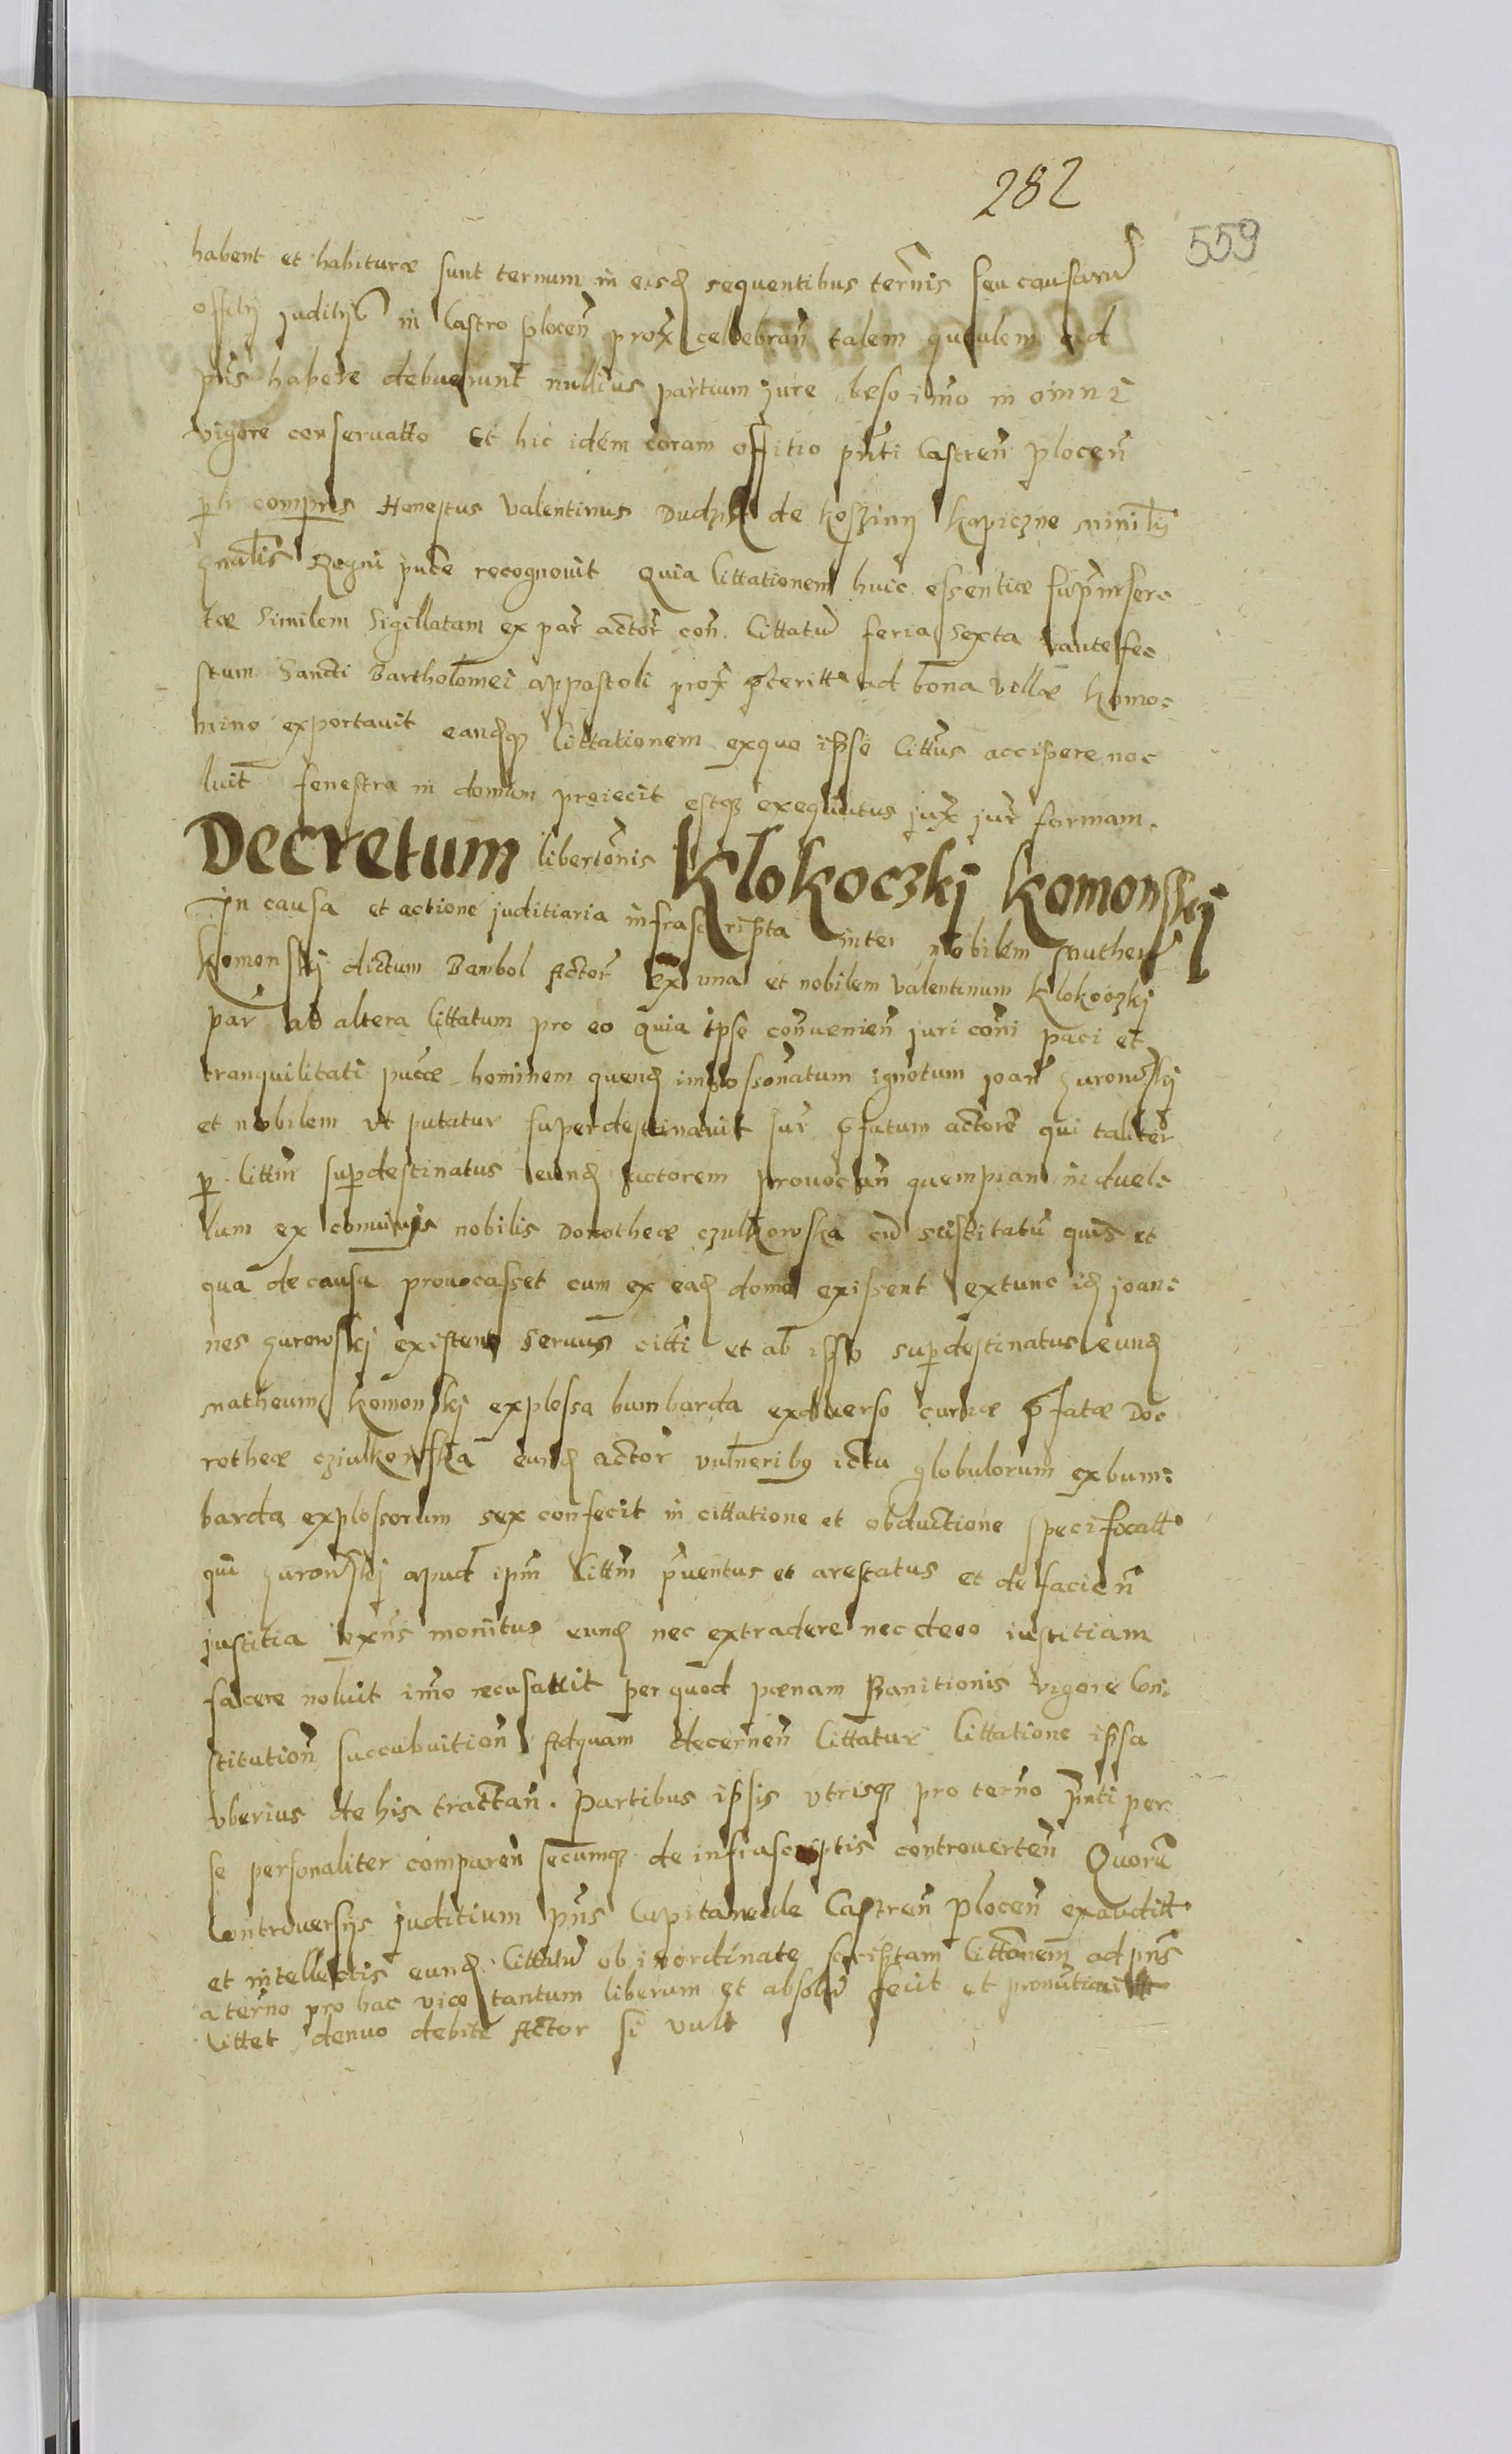 282
559
habent et habituræ sunt ternum in eisd sequentibus ternis seu causaru
offitij juditijs in Castro plocen prox cellebran talem qualem ad
pns habere debuerunt nullius partium jure leso imo in omni
vigore conservatto Et hic idem coram offitio pnti Castren plocen
plr comprns Honestus Valentinus Dudzik de Koszinij Kapiczne ministlis
gnalis Regni pute recognovit Quia Cittationem huic essentiæ suprinser=
tæ similem sigillatam ex par actor con. Cittatu feria sexta ante fe=
stum Sancti Bartholomei appostoli prox pteritt ad bona villæ Komo=
nino exportavit eandq Cittationem exquo ipse Cittus accipere no=
luit fenestra in domum proiecit estq exequutus jux jur formam.
Decretum libertonis Klokoczkj Komonskj
In causa et actione juditiaria infrascripta inter nobilem Matheu
Komonskj dictum Bambol Actor ex una et nobilem Valentinum Klokoczkj
par ab altera Cittatum pro eo quia ipse convenien juri comi paci et
tranquilitati pucæ hominem quend impossonatum ignotum joan Zurowskj
et nobilem ut putatur superdestinavit sur pfatum actore qui taliter
p Cittm supdestinatus eund actorem provocan quempiam in duel=
lum ex convivis nobilis Dorotheæ Czulkowska cu suscitatu quis et
qua de causa provocasset cum ex ead domo exissent extunc id joan=
nes Zurowskj existens servus citti et ab ipso supdestinatus eund
Matheum Komonskj explossa bumbarda ex adverso curiæ pfatæ Do=
rotheæ Cziulkowska eund actor vulneribq ictu globulorum ex bum=
barda explossorum sex confecit in cittatione et obductione specificatt
qui Zurowskj apud ipm Cittm pventus et arestatus et de facien
justitia ex ns monitus eund nec extradere nec de eo iustitiam
facere noluit imo recusavit per quod pænam Banitionis vigore Con
stitution succubuition Adquam decernen Cittatur Cittatione ipsa
uberius de his tractan. Partibus ipsis utrisq pro terno pnti per
se personaliter comparen secumq de infrascriptis controverten Quoru
Controversijs juditium pns Capitaneale Castren plocen exauditt
et intellectis eund Cittatu ob inordinate scriptam Cittonem ad pns
a terno pro hac vice tantum liberum et absolu fecit et pronuntiavit
Cittet denuo debite Actor si vult